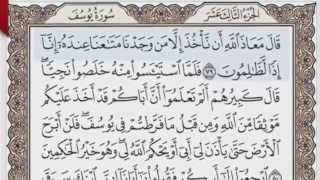 الجزء الثالث عشر
سورة يوسف
قَالَ مَعَاذَ ٱللَّهِ أَن نَّأْخُذَ إِلَّا مَن وَجَدْنَا مَتَٰعَنَا عِندَهُۥٓ إِنَّآ
إِذًا لَّظَٰلِمُونَ ٧٩ فَلَمَّا ٱسْتَيْـَٔسُوا۟ مِنْهُ خَلَصُوا۟ نَجِيًّا
قَالَ كَبِيرُهُمْ أَلَمْ تَعْلَمُوٓا۟ أَنَّ أَبَاكُمْ قَدْ أَخَذَ عَلَيْكُم
مَّوْثِقًا مِّنَ ٱللَّهِ وَمِن قَبْلُ مَا فَرَّطتُمْ فِى يُوسُفَ فَلَنْ أَبْرَحَ
ٱلْأَرْضَ حَتَّىٰ يَأْذَنَ لِىٓ أَبِىٓ أَوْ يَحْكُمَ ٱللَّهُ لِى وَهُوَ خَيْرُ ٱلْحَٰكِمِينَ